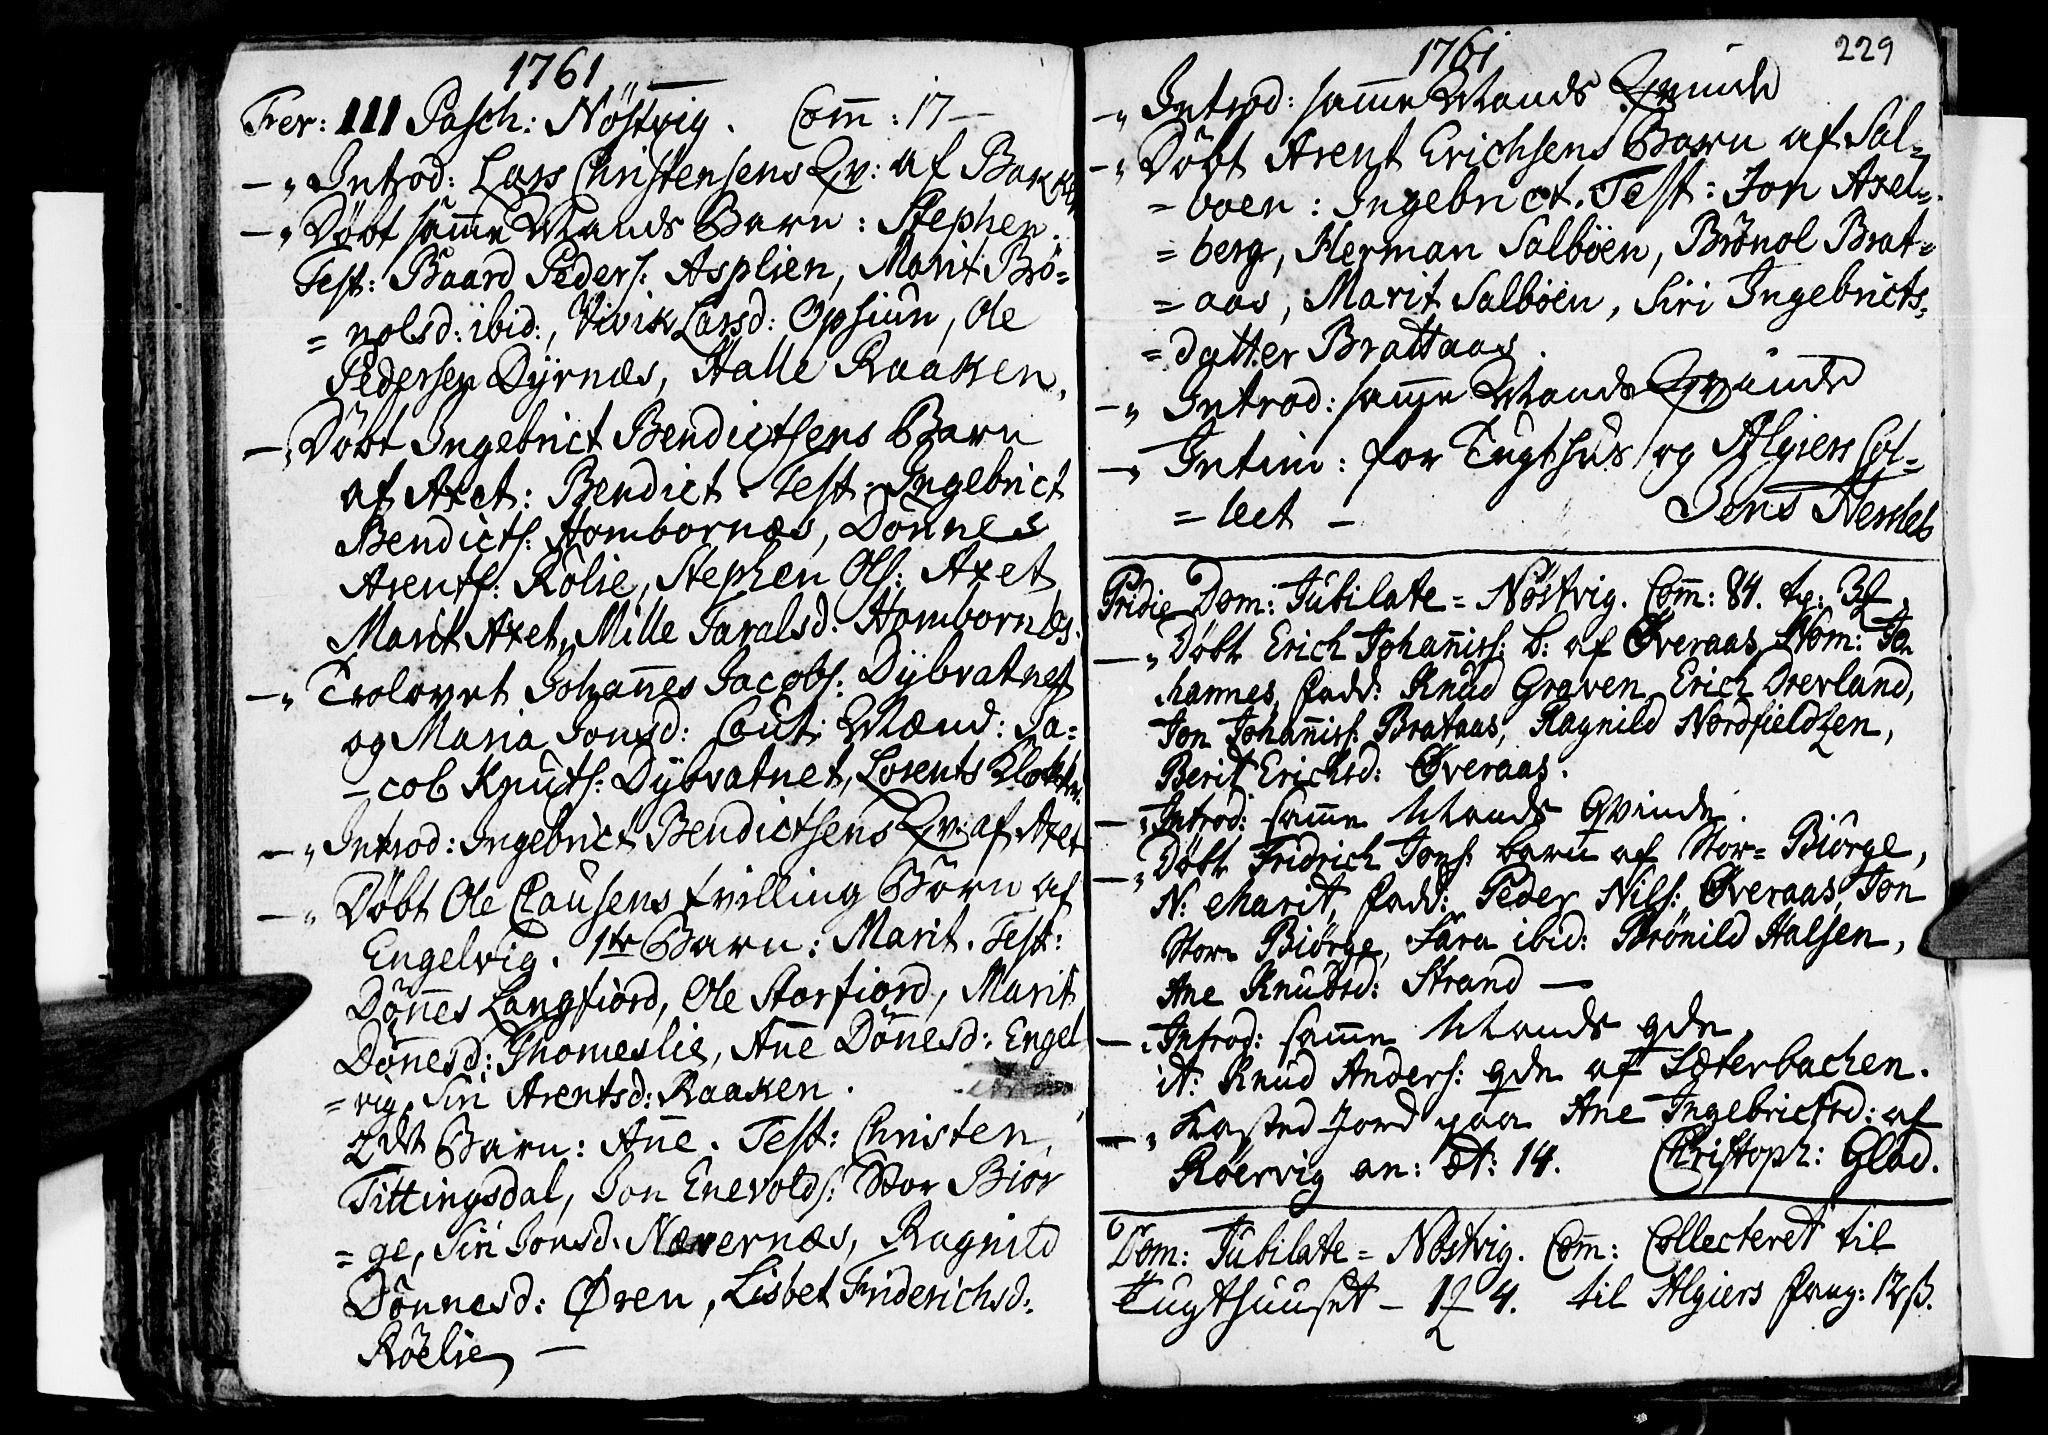 1761
Fer: III Pasch: Nöstvig. Com̄: 17 —
— „ Introd: Lars Christensens Qv: af Bakken
— „ Döbt sam̄e Mands Barn: Stephen.
Test: Baard Peders: Asplien, Marit Brö-
= nolsd: ibid:, Vivik Larsd: Opsiun, Ole
Pedersen Dyrnæs, Halle Raaken.
— „ Döbt Ingebrict Bendictsens Barn
af Axet: Bendict. Test: Ingebrict
Bendicts: Hombornæs, Dönnes
Arents: Rölie, Stephen Ols: Axet
Marit Axet, Mille Taralsd: Hombornæs.
— „ Trolovet Johan̄es Jacobs: Dybvatnet
og Maria Jonsd: Caut: Mænd: Ja-
- cob Knuts: Dybvatnet, Lorents Klokker.
— „ Introd: Ingebrict Bendictsens Qv: af Axet
— „ Döbt Ole Clausens tvilling Börn af
Engelvig. 1te Barn: Marit. Test:
Dön̄es Langfiord, Ole Storfiord, Marit
Dön̄esd: Thomeslie, An̄e Dön̄esd: Engel
= vig, Siri Arentsd: Raaken.
2det Barn: An̄e. Test: Christen
Tittingsdal, Jon Enevolds: Stor Biör
= ge, Siri Jonsd: Nævernæs, Ragnild
Dönnesd: Øren, Lisbet Friderichsd:
Röelie, —
1761 229
— „ Introd: sam̄e Mands Qvinde
— „ Döbt Arent Erichsens Barn af Sal-
= boen: Ingebrict. Test: Jon Axel-
= berg, Herman Salböen, Brönol Brat-
= aas, Marit Salböen, Siri Ingebricts-
= datter Brattaas.
— „ Introd: sam̄e Mands Qvinde
— „ Intim: for Tugthus og Algiers Col-
= lect — Jens
Pridie Dom: Jubilate = Nöstvig. Com̄: 84.
— „ Döbt Erich Johan̄iss: b: af Øveraas, Nom: Jo-
hannes, fadd: Knud Graven, Erich Drevland,
Jon Johan̄iss: Brataas, Ragnild Nordfieldzen,
Berit Erichsd: Øveraas.
— „ Introd: samme Mands Qvinde.
— „ Döbt Fridrich Jons: barn af Stor= Biörge,
N: Marit, fadd: Peder Nils: Øveraas, Jon
Stor= Biörge, Sara ibid: Brönild Halsen,
Ane Knudsd: Strand —
— „ Introd: samme Mands qde.
it: Knud Anders: qde af Sæterbachen.
— „ Kasted Jord paa Ane Ingebrictsd: af
Röervig an: æt: 14. Christoph: Glad.
Dom: Jubilate = Nöstvig. Com̄: Collecteret til
Tugthuuset — 4. til Algiers fang: 12 ß.